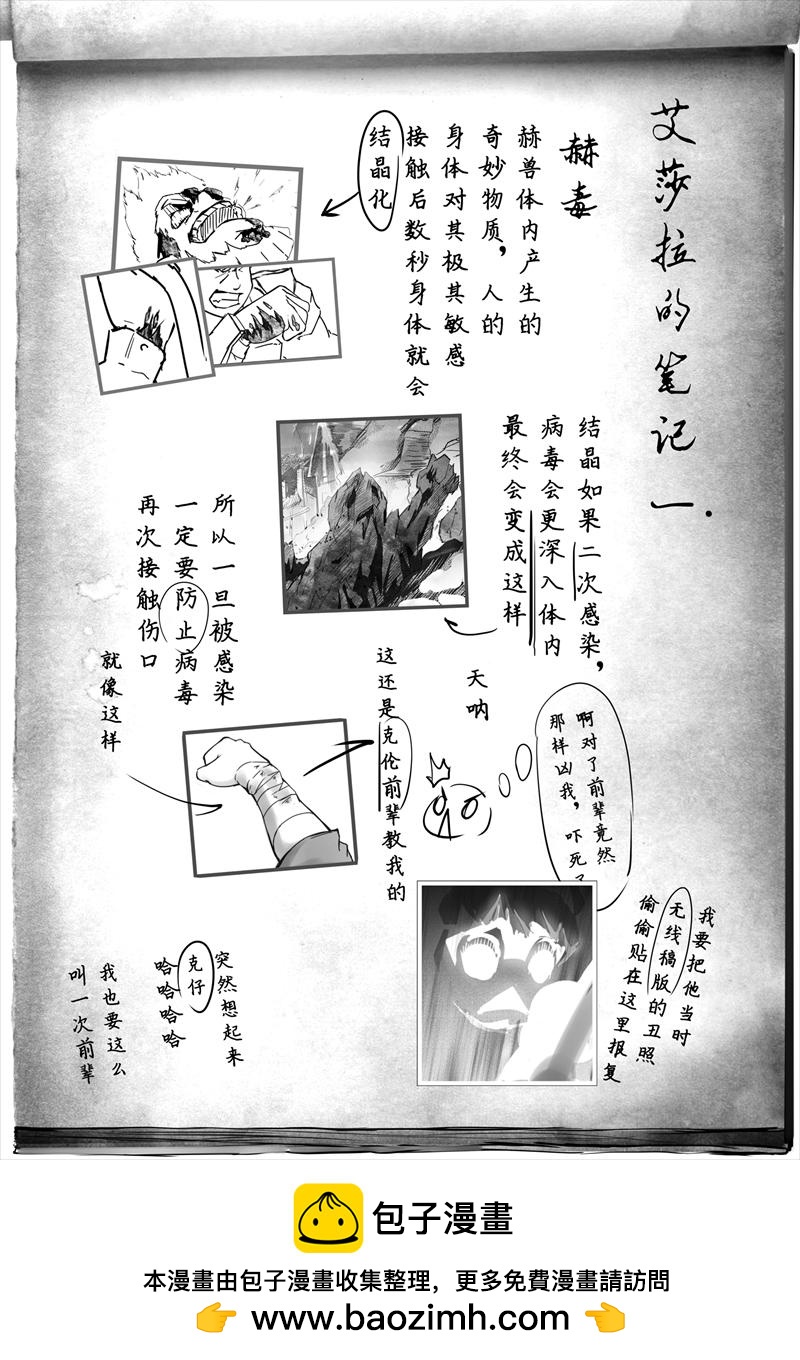 艾莎拉的笔记 一.
赫毒
赫兽体内产生的
奇妙物质，人的
身体对其极其敏感
接触后数秒身体就会
结晶化
结晶如果二次感染，
病毒会更深入体内
最终会变成这样
所以一旦被感染
一定要防止病毒
再次接触伤口
就像这样
天呐
这还是克伦前辈教我的
啊对了前辈竟然
那样凶我，吓死了
我要把他当时
无线稿版的丑照
偷偷贴在这里报复
突然想起来
克仔
哈哈哈哈
我也要这么
叫一次前辈
包子漫畫
本漫畫由包子漫畫收集整理，更多免費漫畫請訪問
👉 www.baozimh.com 👈